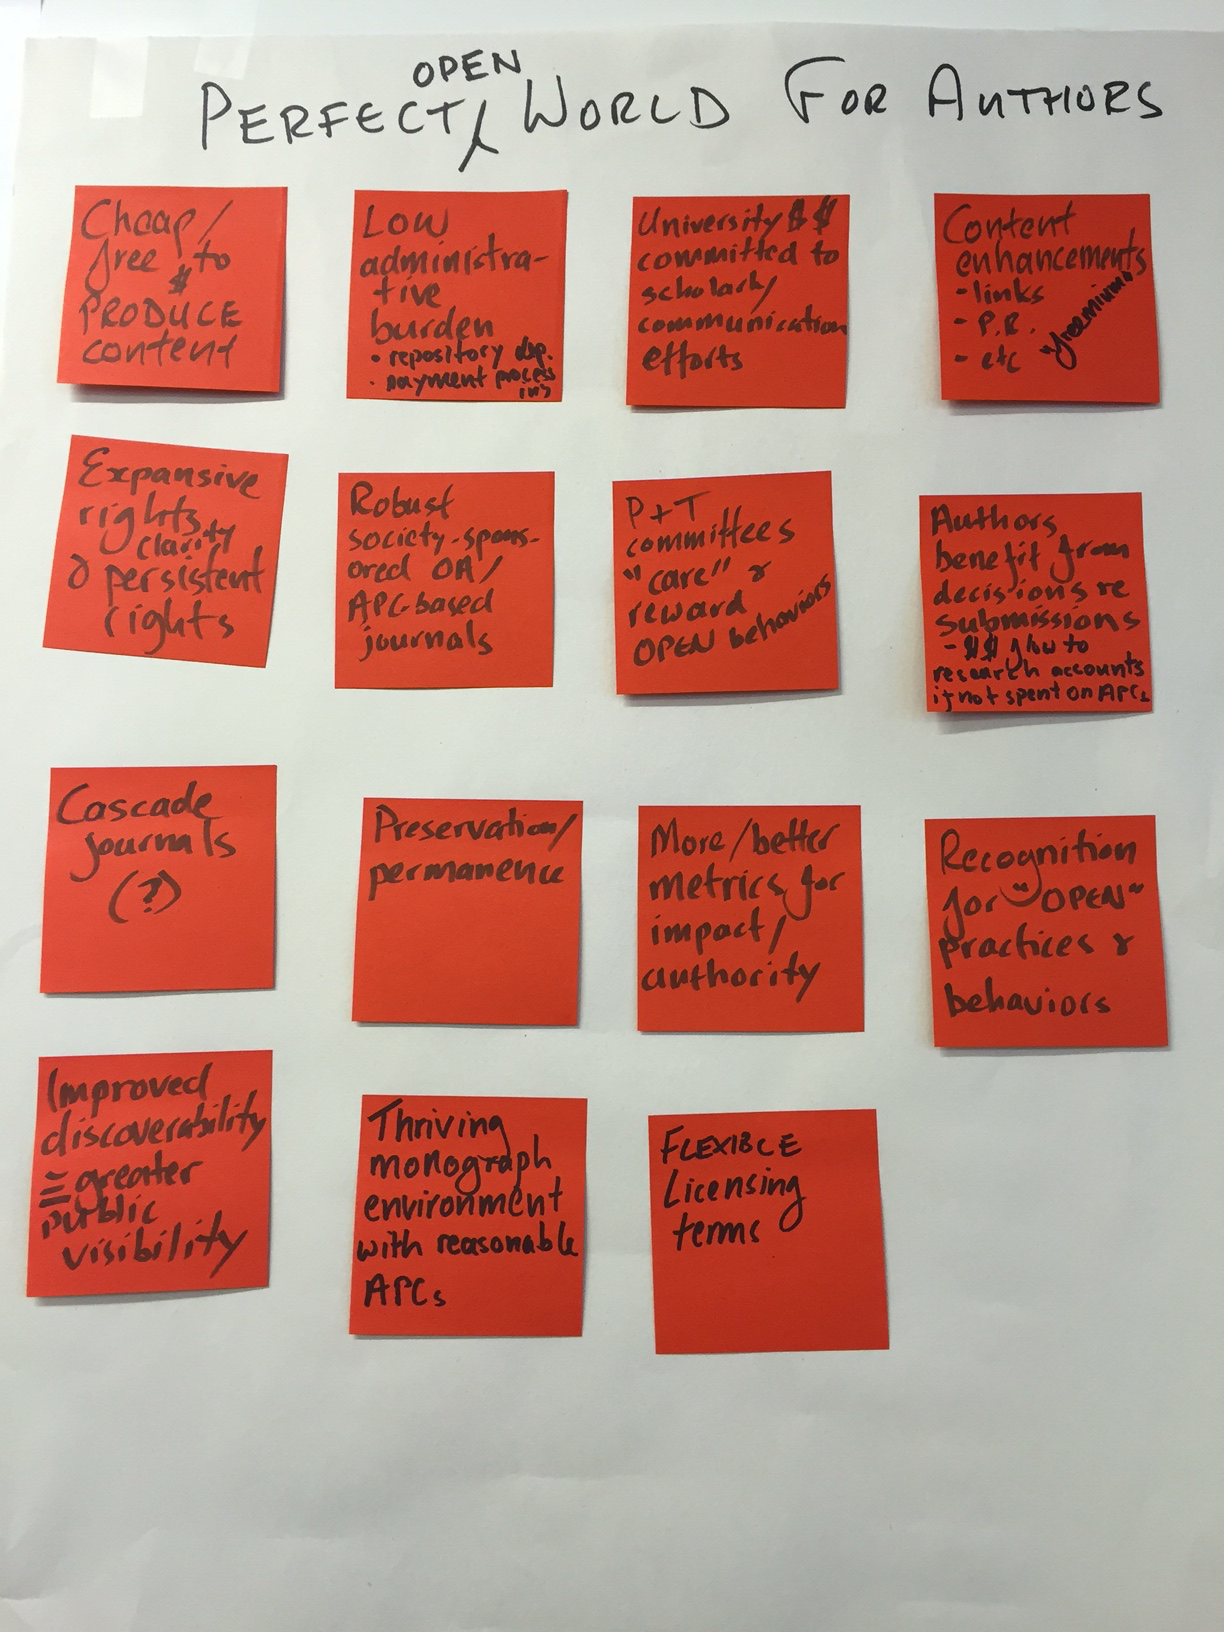 OPEN
PERFECT WORLD FOR AUTHORS
Cheap/
free $ to
PRODUCE
content
Low
administra-
tive
burden
• repository dep.
• payment process
ing
University $$
committed to
scholarly
communication
efforts
Content
enhancements
- links
- P.R.
- etc
"freemium"
Expansive
rights
clarity
& persistent
rights
Robust
society-spons-
ored OA/
APC-based
journals
P + T
committees
"care" &
reward
OPEN behaviors
Authors
benefit from
decisions re
submissions
- $$ flow to
research accounts
if not spent on APCs
Cascade
journals
(?)
Preservation/
permanence
More/better
metrics for
impact/
authority
Recognition
for "OPEN"
practices &
behaviors
Improved
discoverability
= greater
public
visibility
Thriving
monograph
environment
with reasonable
APCs
FLEXIBLE
Licensing
terms